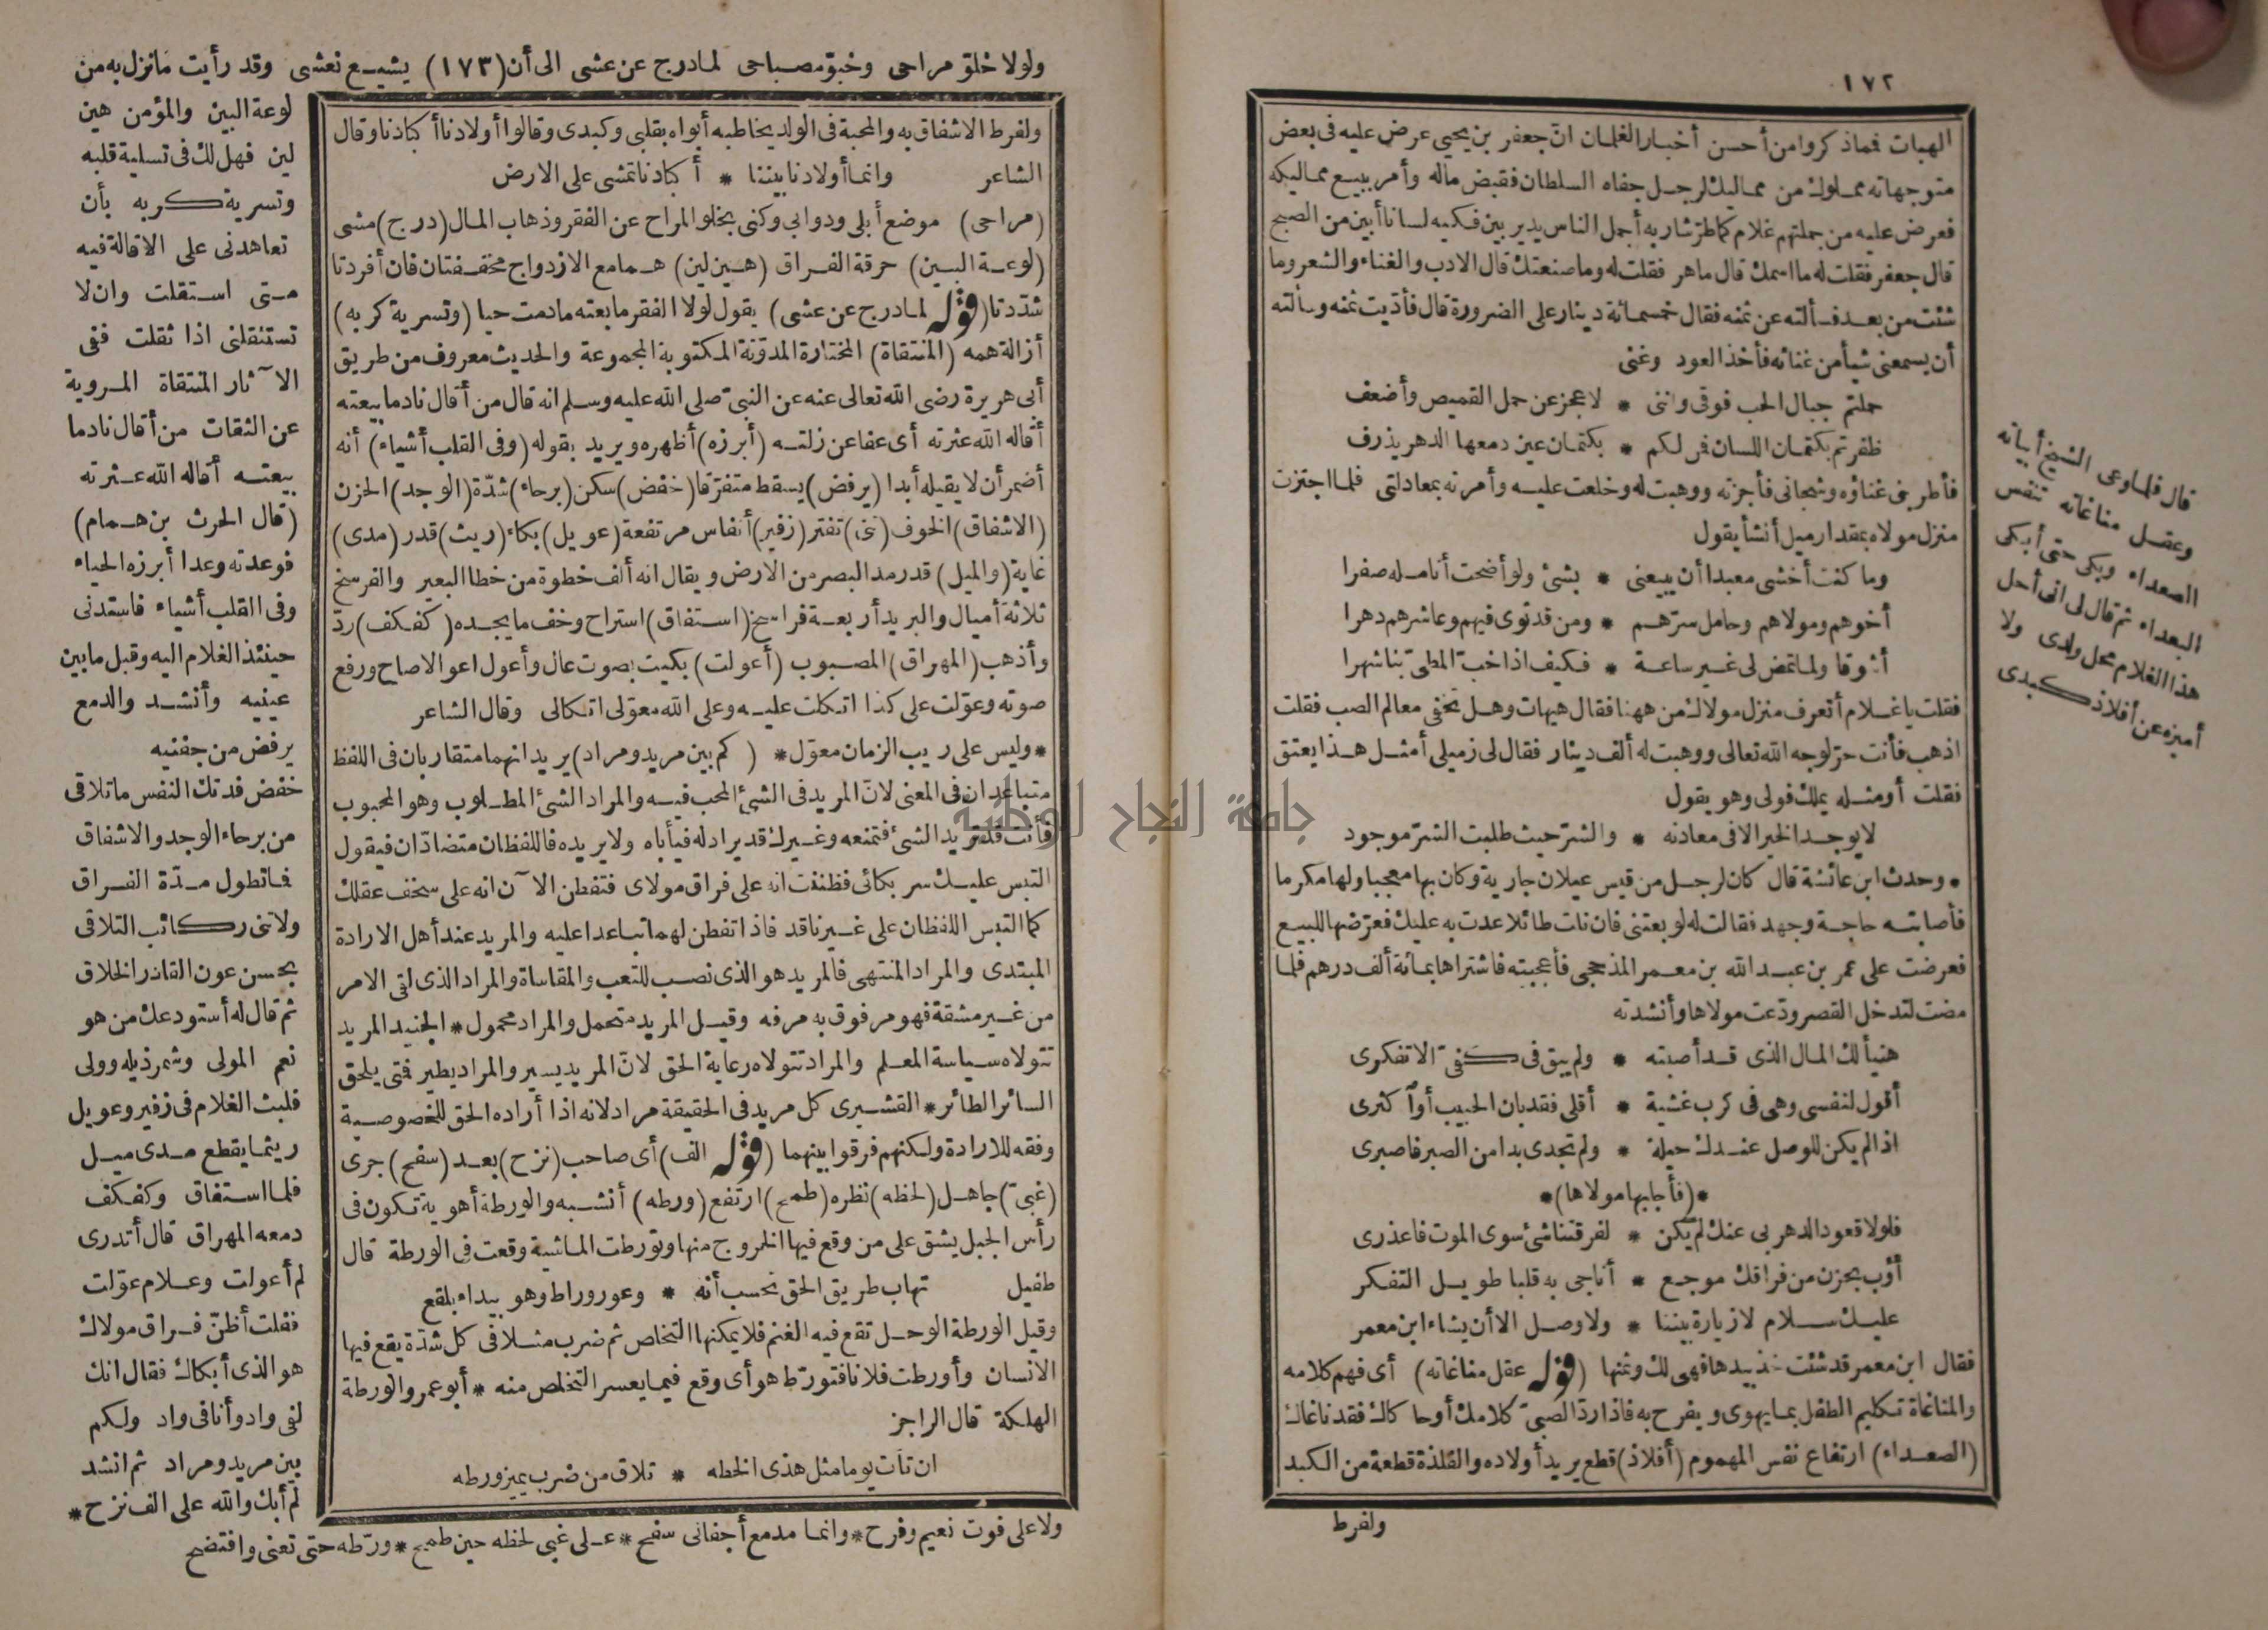 ١٧٢
الهبات فماذكروا من أحسن أخبار الغلمان انّ جعفر بن يحيى عرض عليه فى بعض
متوجهاته مملوك من مماليك لرجل جفاه السلطان فقبض ماله وأمر ببيع مماليكه
فعرض عليه من جملتهم غلام كماطرّ شاربه أجمل الناس يدير بين فكيه لسانا أبين من الصبح
قال جعفر فقلت له ما اسمك قال ماهر فقلت له وما صنعتك قال الادب والغناء والشعر وما
شئت من بعد فسألته عن ثمنه فقال خمسمائة دينار على الضرورة قال فأدّيت ثمنه وسألته
أن يسمعنى شيأ من غنائه فأخذ العود وغنى
حملتم جبال الحب فوقى واننى * لاعجز عن حمل القميص وأضعف
ظفرتم بكتمان اللسان فمن لكم * بكتمان عين دمعها الدهر يذرف
فأطربنى غناؤه وشجانى فأجزته ووهبت له وخلعت عليه وأمرته بمعادلتى فلما اجتزت
منزل مولاه بمقدار ميل أنشأ يقول
وما كنت أخشى معبدا أن يبيعنى * بشئ ولو أضحت أنامله صفرا
أخوهم ومولاهم وحامل سرّهم * ومن قد ثوى فيهم وعاشرهم دهرا
أشوقا ولما تمض لى غير ساعة * فكيف اذا خبّ المطىّ بنا شهرا
فقلت ياغلام أتعرف منزل مولاك من ههنا فقال هيهات وهل تخفى معالم الصب فقلت
اذهب فأنت حرّ لوجه الله تعالى ووهبت له ألف دينار فقال لى زميلى أمثل هذا يعتق
فقلت أومثله يملك فولى وهو يقول
لايوجد الخير الا فى معادنه * والشرّ حيث طلبت الشرّ موجود
* وحدث ابن عائشة قال كان لرجل من قيس عيلان جارية وكان بها معجبا ولها مكرما
فأصابته حاجة وجهد فقالت له لو بعتنى فان نلت طائلا عدت به عليك فعرّضها للبيع
فعرضت على عمر بن عبد الله بن معمر المذحجى فأعجبته فاشتراها بمائة ألف درهم فلما
مضت لتدخل القصر ودّعت مولاها وأنشدته
هنيأ لك المال الذى قد أصبته * ولم يبق فى كفىّ الا تفكرى
أقول لنفسى وهى فى كرب غشية * أقلى فقد بان الحبيب أو أكثرى
اذا لم يكن للوصل عندك حيلة * ولم تجدى بدا من الصبر فاصبرى
*(فأجابها مولاها)*
فلولا قعود الدهر بى عنك لم يكن * لفرقتنا شئ سوى الموت فاعذرى
أؤب بحزن من فراقك موجع * أناجى به قلبا طويل التفكر
عليك سلام لا زيارة بيننا * ولا وصل الا أن يشاء ابن معمر
فقال ابن معمر قد شئت خذ بيدها فهى لك وثمنها (قوله عقل مناغاته) أى فهم كلامه
والمناغاة تكليم الطفل بما يهوى ويفرح به فاذا ردّ الصبىّ كلامك أو حاكاك فقد ناغاك
(الصعداء) ارتفاع نفس المهموم (أفلاذ) قطع يريد أولاده والفلذة قطعة من الكبد
ولفرط
قال فلما وعى الشيخ أبياته
وعقل مناغاته تنفس
الصعداء وبكى حتى أبكى
البعداء ثم قال لى انى أحل
هذا الغلام محل ولدى ولا
أميزه عن أفلاذ كبدى
ولولا خلق مراحى وخبق مصباحى لما درج عن عشى الى أن (١٧٣) يشيع نعشى وقد رأيت مانزل به من
ولفرط الاشفاق به والمحبة فى الولد يخاطبه أبواه بقلبى وكبدى وقالوا أولادنا أكبادنا وقال
الشاعر وانما أولادنا بيننا * أكبادنا تمشى على الارض
(مراحى) موضع أبلى ودوابى وكنى بخلو المراح عن الفقر وذهاب المال (درج) مشى
(لوعة البين) حرقة الفراق (هين لين) هما مع الازدواج مخففتان فان أفردتا
شدّدتا (قوله لما درج عن عشى) يقول لولا الفقر ما بعته مادمت حيا (وتسرية كربه)
أزالة همه (المنتقاة) المختارة المدوّنة المكتوبة المجموعة والحديث معروف من طريق
أبى هريرة رضى الله تعالى عنه عن النبىّ صلى الله عليه وسلم انه قال من أقال نادما بيعته
أقاله الله عثرته أى عفا عن زلته (أبرزه) أظهره ويريد بقوله (وفى القلب أشياء) أنه
أضمر أن لا يقيله أبدا (يرفض) يسقط متفرّقا (خفض) سكن (برحاء) شدّة (الوجد) الحزن
(الاشفاق) الخوف (تنى) تفتر (زفير) أنفاس مرتفعة (عويل) بكاء (ريث) قدر (مدى)
غاية (والميل) قدر مد البصر من الارض ويقال انه ألف خطوة من خطا البعير والفرسخ
ثلاثة أميال والبريد أربعة فراسخ (استفاق) استراح وخف ما يجده (كفكف) ردّ
وأذهب (المهراق) المصبوب (أعولت) بكيت بصوت عال وأعول اعوالا صاح ورفع
صوته وعوّلت على كذا اتكلت عليه وعلى الله معوّلى اتكالى وقال الشاعر
*وليس على ريب الزمان معوّل* (كم بين مريد ومراد) يريد انهما متقاربان فى اللفظ
متباعدان فى المعنى لانّ المريد فى الشئ المحب فيه والمراد الشئ المطلوب وهو المحبوب
فأنت قد تريد الشئ فتمنعه وغيرك قد يراد له فيأباه ولا يريده فاللفظان متضادّان فيقول
التبس عليك سر بكائى فظننت انه على فراق مولاى فتفطن الآن انه على سخف عقلك
كما التبس اللفظان على غير ناقد فاذا تفطن لهما تباعدا عليه والمريد عند أهل الارادة
المبتدى والمراد المنتهى فالمريد هو الذى نصب للتعب والمقاساة والمراد الذى لقى الامر
من غير مشقة فهو مرفوق به مرفه وقيل المريد متحمل والمراد محمول * الجنيد المريد
تتولاه سياسة المعلم والمراد تتولاه رعاية الحق لانّ المريد يسير والمراد يطير فمتى يلحق
السائر الطائر * القشيرى كل مريد فى الحقيقة مراد لانه اذا أراده الحق للخصوصية
وفقه للارادة ولكنهم فرقوا بينهما (قوله الف) أى صاحب (نزح) بعد (سفح) جرى
(غبىّ) جاهل (لحظه) نظره (طمح) ارتفع (ورطه) أنشبه والورطة أهوية تكون فى
رأس الجبل يشق على من وقع فيها الخروج منها وتورطت الماشية وقعت فى الورطة قال
طفيل تهاب طريق الحق تحسب أنه * وعور وراط وهو بيداء بلقع
وقيل الورطة الوحل تقع فيه الغنم فلا يمكنها التخلص ثم ضرب مثلا فى كل شدّة يقع فيها
الانسان وأورطت فلانا فتورّط هو أى وقع فيما يعسر التخلص منه * أبو عمرو الورطة
الهلكة قال الراجز
ان تأت يوما مثل هذى الخطه * تلاق من ضرب نمير ورطه
لوعة البين والمؤمن هين
لين فهل لك فى تسلية قلبه
وتسرية كربه بأن
تعاهدنى على الاقالة فيه
متى استقلت وان لا
تستثقلنى اذا ثقلت ففى
الآثار المنتقاة المروية
عن الثقات من أقال نادما
بيعته أقاله الله عثرته
(قال الحرث بن همام)
فوعدته وعدا أبرزه الحياء
وفى القلب أشياء فاستدنى
حينئذ الغلام اليه وقبل مابين
عينيه وأنشد والدمع
يرفض من جفنيه
خفض فدتك النفس ماتلاقى
من برحاء الوجد والاشفاق
فما تطول مدّة الفراق
ولا تنى ركائب التلاقى
بحسن عون القادر الخلاق
ثم قال له أستودعك من هو
نعم المولى وشمر ذيله وولى
فلبث الغلام فى زفير وعويل
ريثما يقطع مدى ميل
فلما استفاق وكفكف
دمعه المهراق قال أتدرى
لم أعولت وعلام عوّلت
فقلت أظنّ فراق مولاك
هو الذى أبكاك فقال انك
لفى واد وأنا فى واد ولكم
بين مريد ومراد ثم انشد
لم أبك والله على الف نزح *
ولا على فوت نعيم وفرح * وانما مدمع أجفانى سفح * على غبى لحظه حين طمح * ورّطه حتى تعنى وافتضح
جامعة النجاح الوطنية